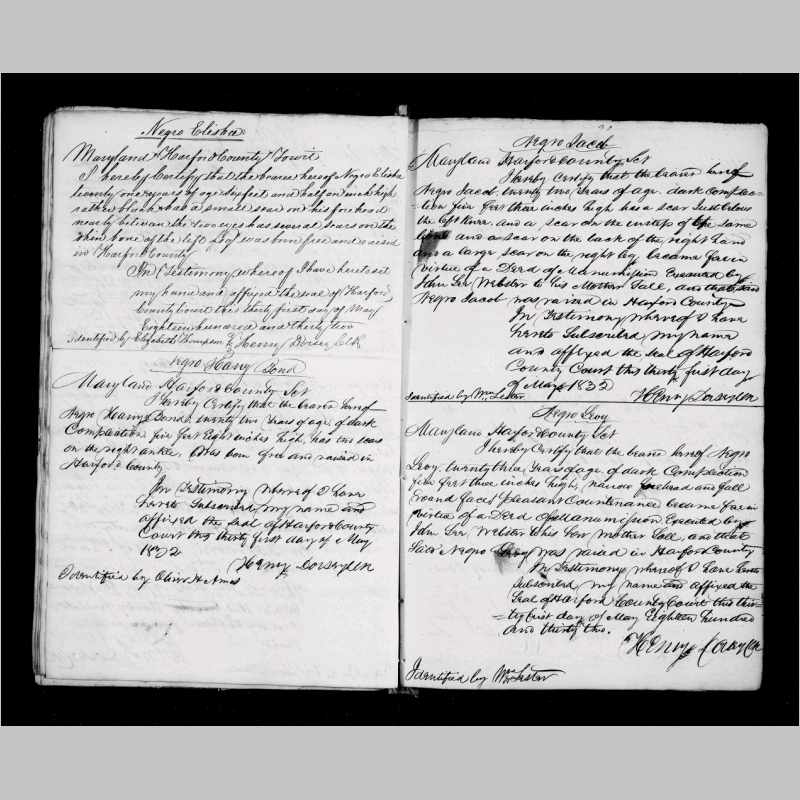 Negro Elisha
Maryland Harford County Towit
I hereby Certify that the bearer hereof Negro Elisha
twenty one years of age six feet and half an inch high
rather black has a small scar on his forehead
nearly between the two eyes has several scars on the
shin bone of the left Leg was born free and raised
in Harford County
In Testimony whereof I have hereto set
my hand and affixed the seal of Harford
County Court this thirty first day of May
Eighteen hundred and thirty two
Identified by Elizabeth Thompson Henry Dorsey Clk
Negro Harry Bond
Maryland Harford County Sct
I hereby Certify that the bearer hereof
Negro Harry Bond twenty two Years of age, of dark
Complection five feet Eight inches high, has two scars
on the right ankle. Was born free and raised in
Harford County
In Testimony whereof I have
hereto Subscribed my name and
affixed the Seal of Harford County
Court this thirty first day of May
1832
Henry Dorsey Clk
Identified by Oliver H Amos
Negro Jacob
Maryland Harford County Sct
I hereby Certify that the bearer hereof
Negro Jacob, twenty two Years of age dark Complec=
=tion five feet three inches high has a scar Just below
the left Knee and a scar on the instep of the same
and a scar on the back of the right hand
and a large scar on the right leg became free in
virtue of a Deed of Manumission Executed by
John Lee Webster to his Mother Sall, and that said
Negro Jacob was raised in Harford County
In Testimony whereof I have
hereto Subscribed my name
and affixed the Seal of Harford
County Court this thirty first day
of May 1832
Identified by Wm Lester Henry Dorsey Clk
Negro Levy
Maryland Harford County Sct
I hereby Certify that the bearer hereof Negro
Levy twenty three Years of age of dark Complection
five feet three inches high, narrow forehead and full
round face, pleasant Countenance became free in
virtue of a Deed of Manumission Executed by
John Lee Webster to his Mother Sall, and that
Said Negro Levy was raised in Harford County
In Testimony whereof I have hereto
Subscribed my name and affixed the
Seal of Harford County Court this thir=
=ty first day of May Eighteen hundred
and thirty two.
Henry Dorsey Clk
Identified by Wm Lester